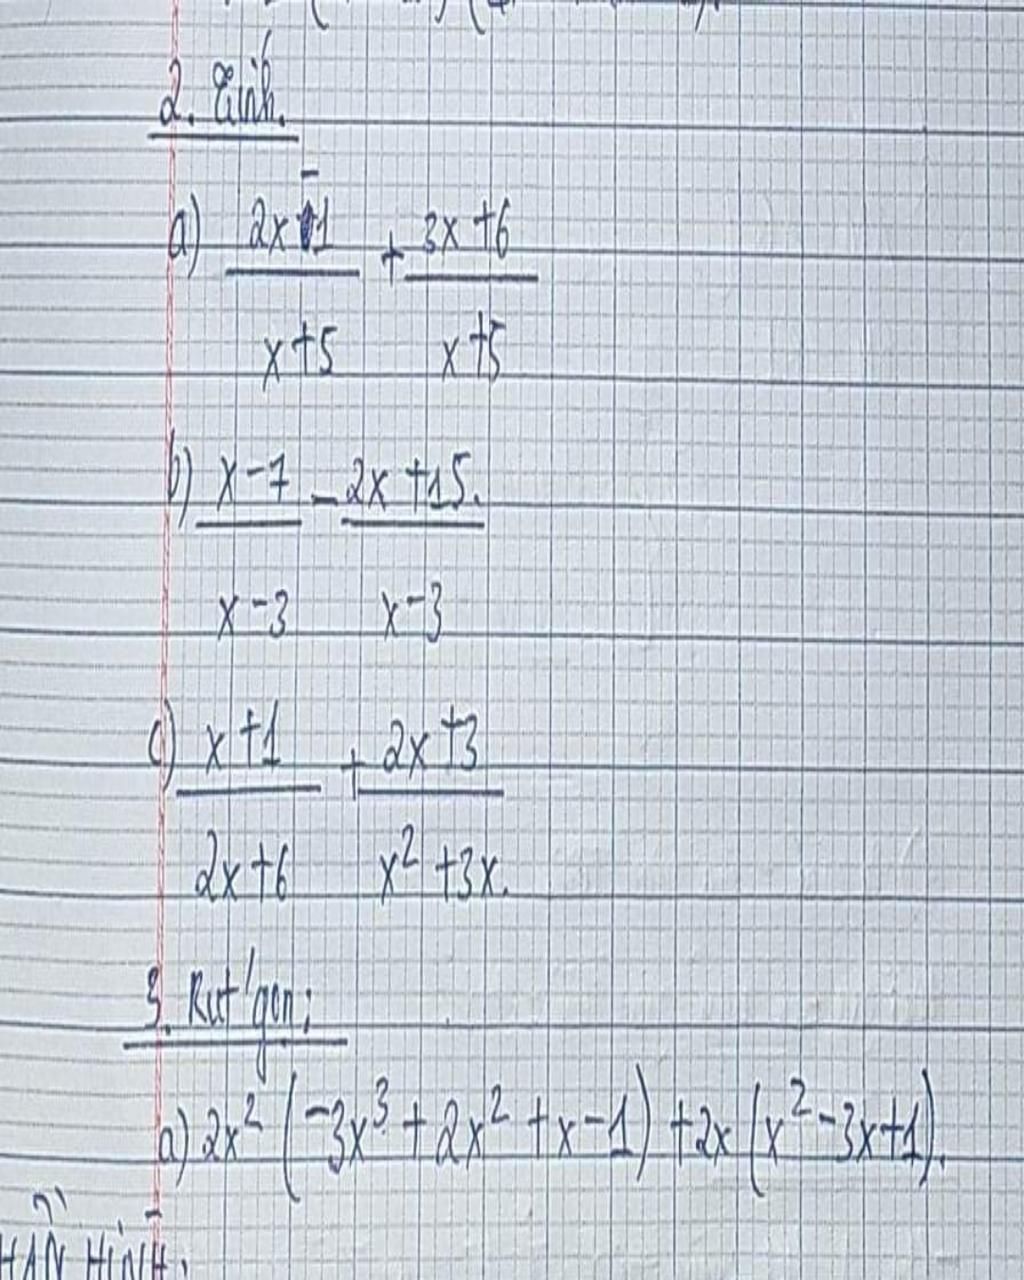 2. Tính.
a) (2x - 1)/(x+5) + (3x+6)/(x+5)
b) (x-7)/(x-3) - (2x+15.)/(x-3)
c) (x+1)/(2x+6) + (2x+3)/(x² +3x.)
3. Rút gọn:
a) 2x² (-3x³ + 2x² + x - 1) + 2x (x² - 3x + 1).
HÌNH: